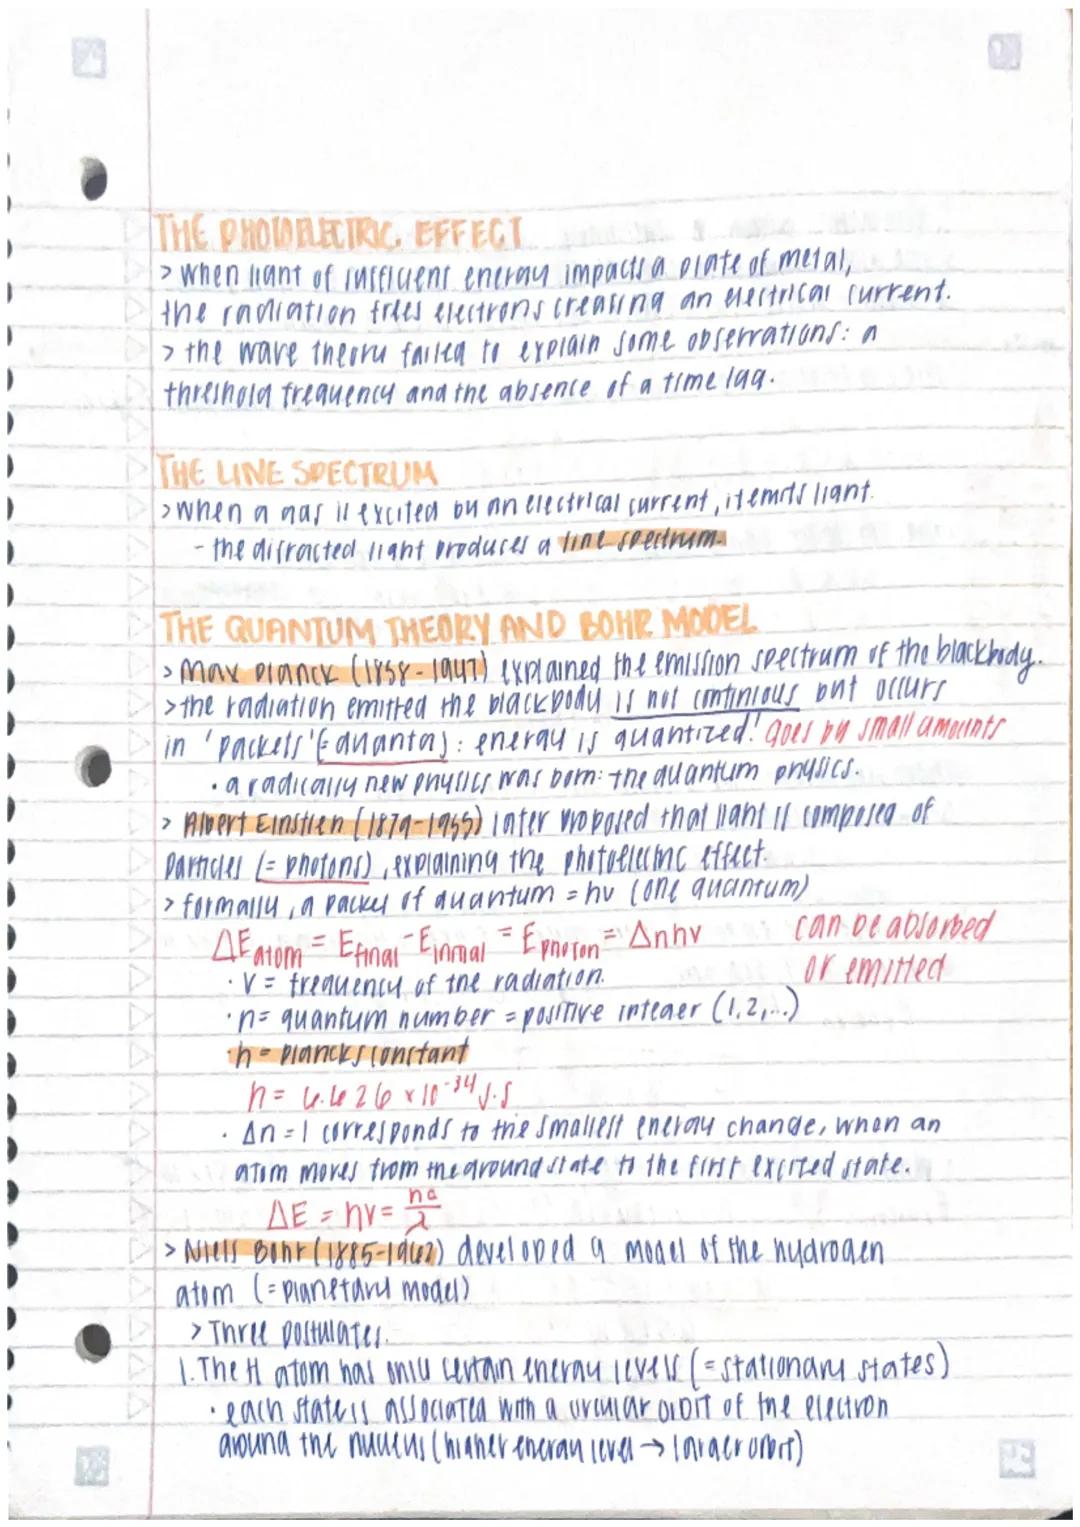 THE PHOTOELECTRIC EFFECT
> When light of sufficient energy impacts a plate of metal,
the radiation frees electrons creating an electrical current.
> the wave theory failed to explain some observations: a
threshold frequency and the absence of a time lag.
THE LINE SPECTRUM
> When a gas is excited by an electrical current, it emits light.
- the difracted light produces a line spectrum.
THE QUANTUM THEORY AND BOHR MODEL
> Max Planck (1858-1947) explained the emission spectrum of the blackbody.
> the radiation emitted the blackbody is not continious but occurs
in 'packets' (= quanta): energy is quantized! goes by small amounts
· a radically new physics was born: the quantum physics.
> Albert Einstien (1879-1955) later proposed that light is composed of
particles (= photons), explaining the photoelectric effect.
> formally, a packet of quantum = hv (one quantum)
ΔEatom = Efinal - Einitial = Ephoton = Δnhv can be absorbed
or emitted
· v = frequency of the radiation.
· n = quantum number = positive integer (1,2,...)
· h = plancks constant
h = 6.626 x 10^-34 J·S
· Δn = 1 corresponds to the smallest energy change, when an
atom moves from the ground state to the first excited state.
ΔE = hv = hc/λ
> Niels Bohr (1885-1962) developed a model of the hydrogen
atom (= planetary model)
> Three postulates.
1. The H atom has only certain energy levels (= stationary states)
· each state is associated with a circular orbit of the electron
around the nucleus (higher energy level → larger orbit)